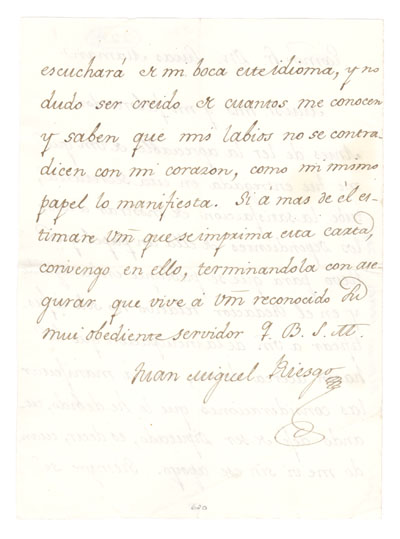 escuchará de mi boca este idioma, y no
dudo ser creido de cuantos me conocen
y saben que mis labios no se contra-
dicen con mi corazon, como mi mismo
papel lo manifiesta. Si a mas de él es-
timare Vm que se imprima esta carta,
convengo en ello, terminandola con ase-
gurar que vive á Vm reconocido su
mui obediente servidor q. B. S. M.
Juan Miguel Riesgo